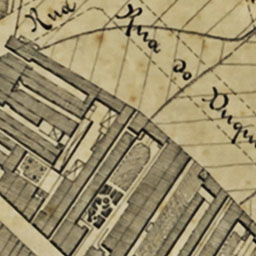 Rua
Rua do Duque